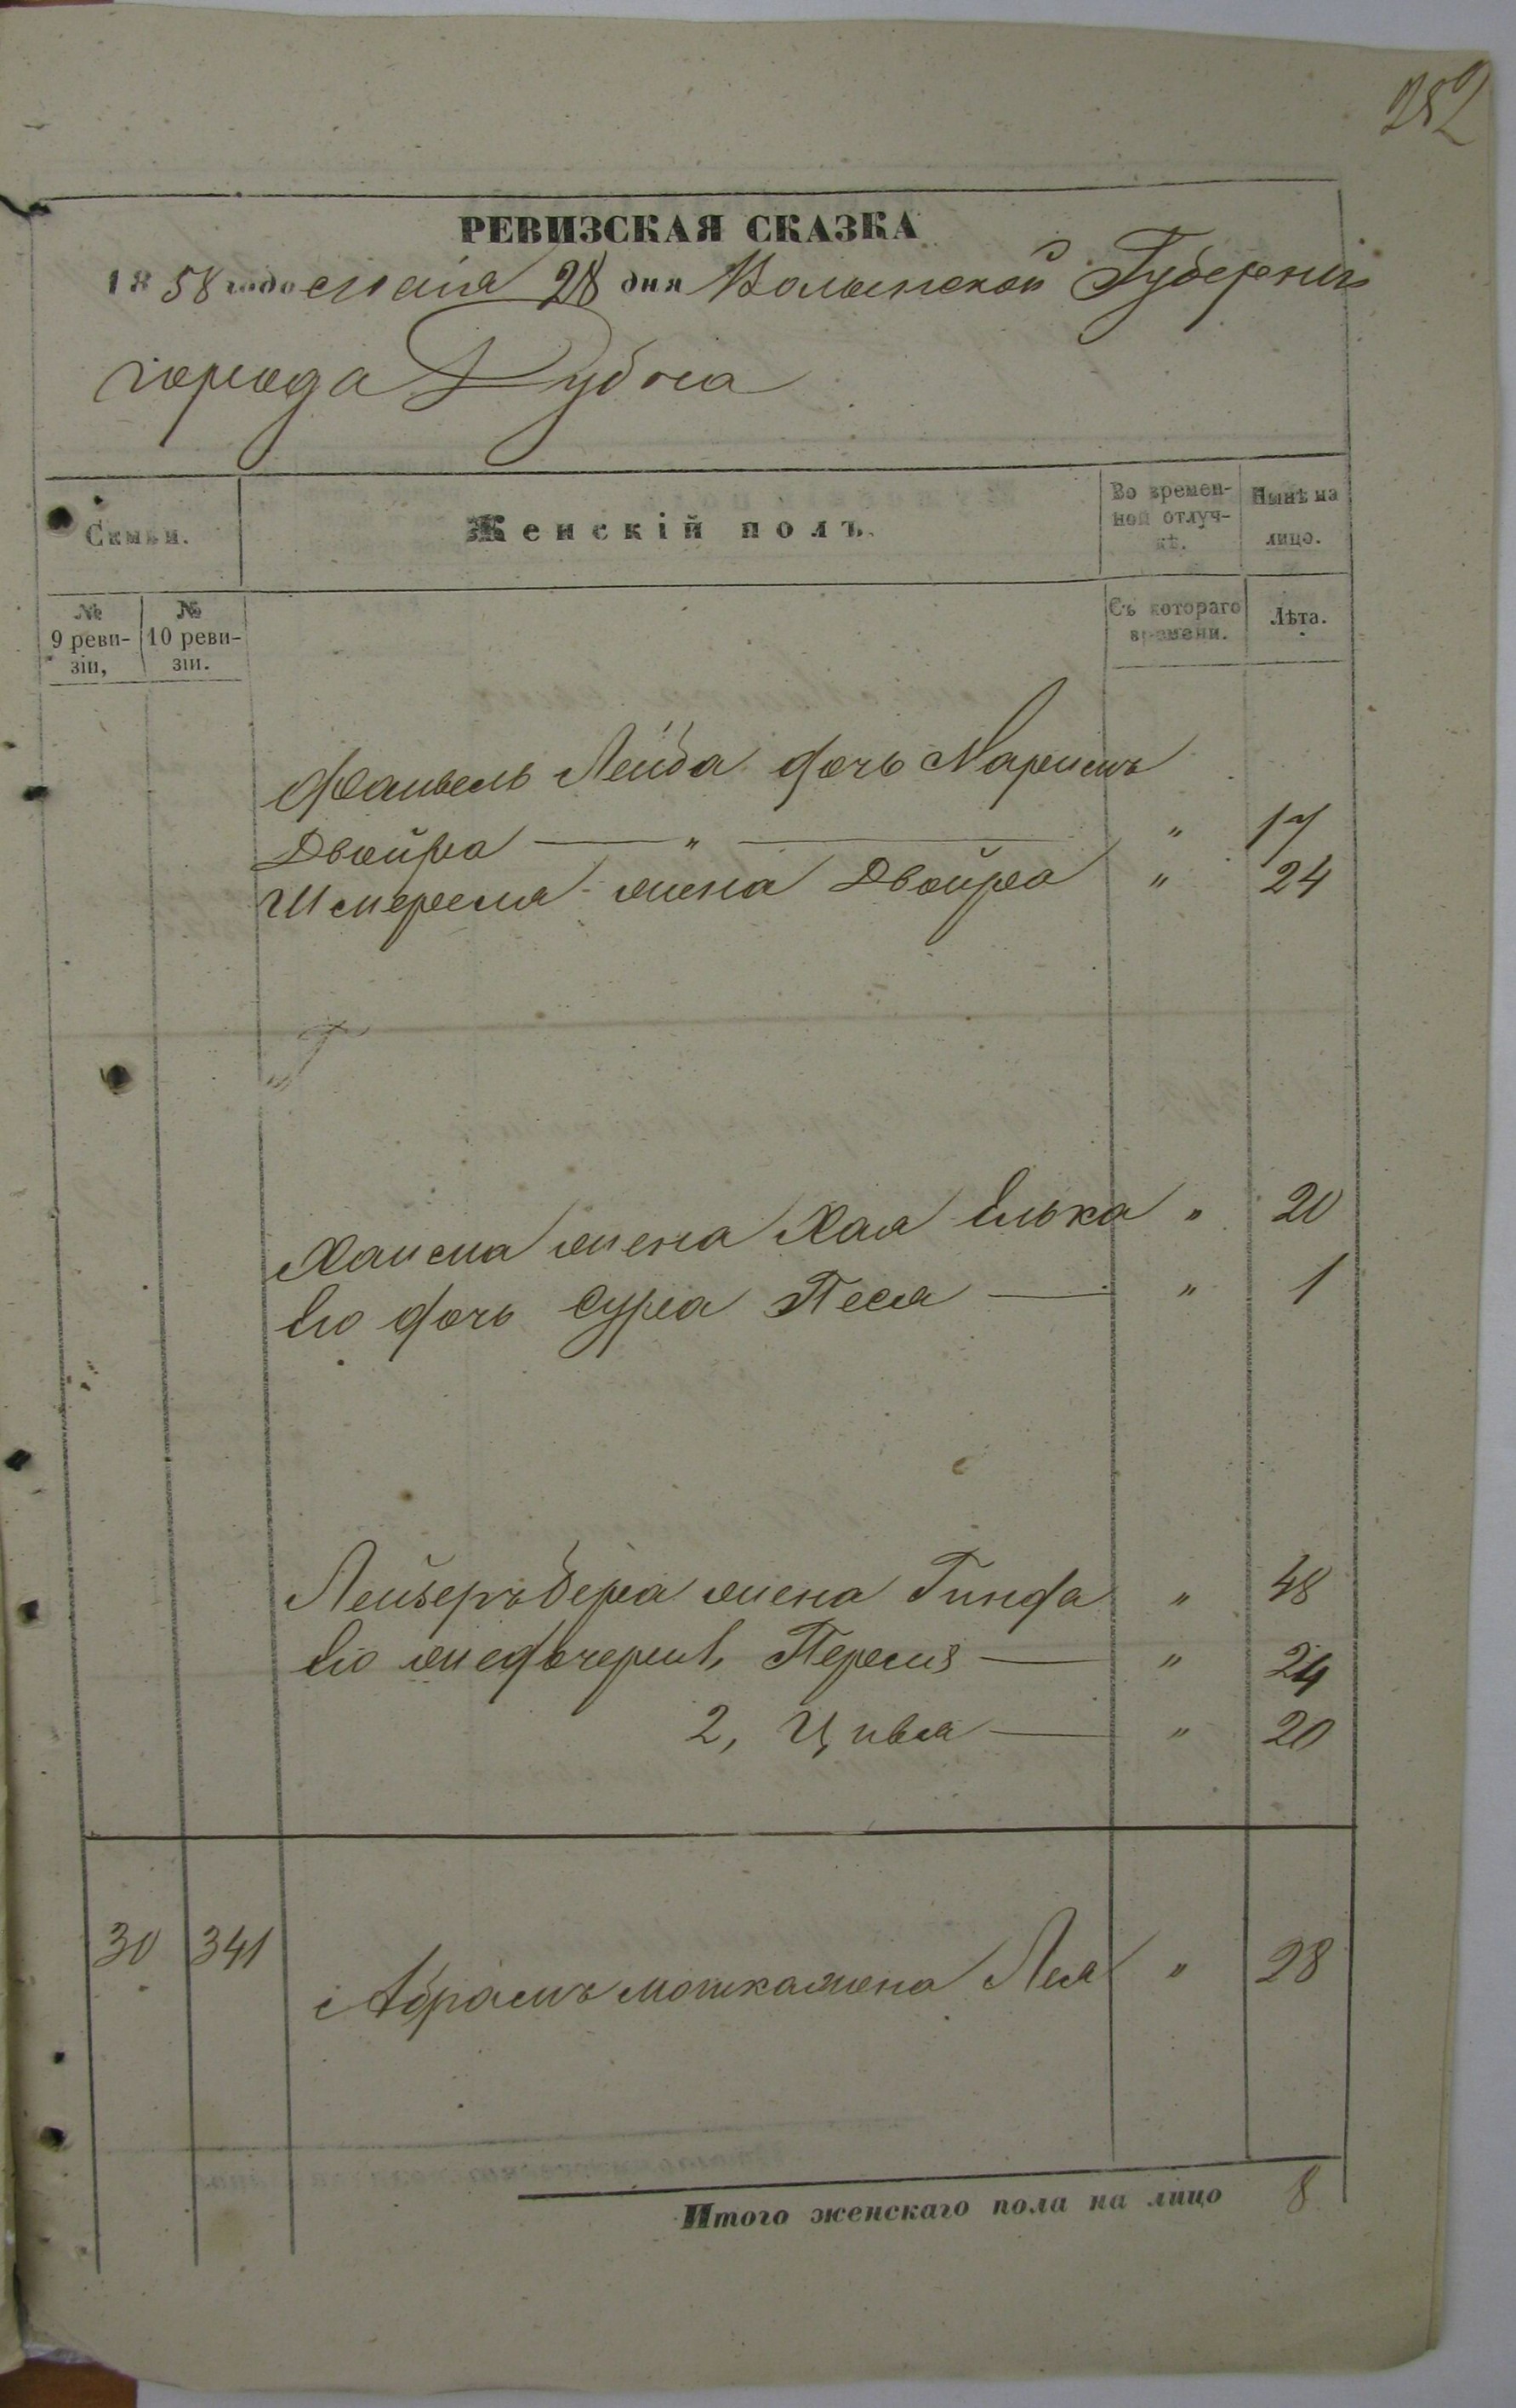 282
РЕВИЗСКАЯ СКАЗКА
1858 года мая 28 дня Волынской Губернии
города Дубна
Семьи.
Женскій полъ.
Во времен-
ной отлуч-
кѣ.
Нынѣ на
лицо.
№
9 реви-
зіи,
№
10 реви-
зіи.
Съ котораго
времени.
Лѣта.
Файвель Лейба дочь Мариемъ
Двойра — " — " 17
Шмереля жена Двойра " 24
Хаима жена Хая Елька " 20
Его дочь Сура Песя — " 1
Лейзеръ Бера жена Гинда " 48
Его же дочери 1, Перля — " 24
2, Цивья — " 20
30 341 Абрамъ Мошка жена Лея " 28
Итого женскаго пола на лицо 8